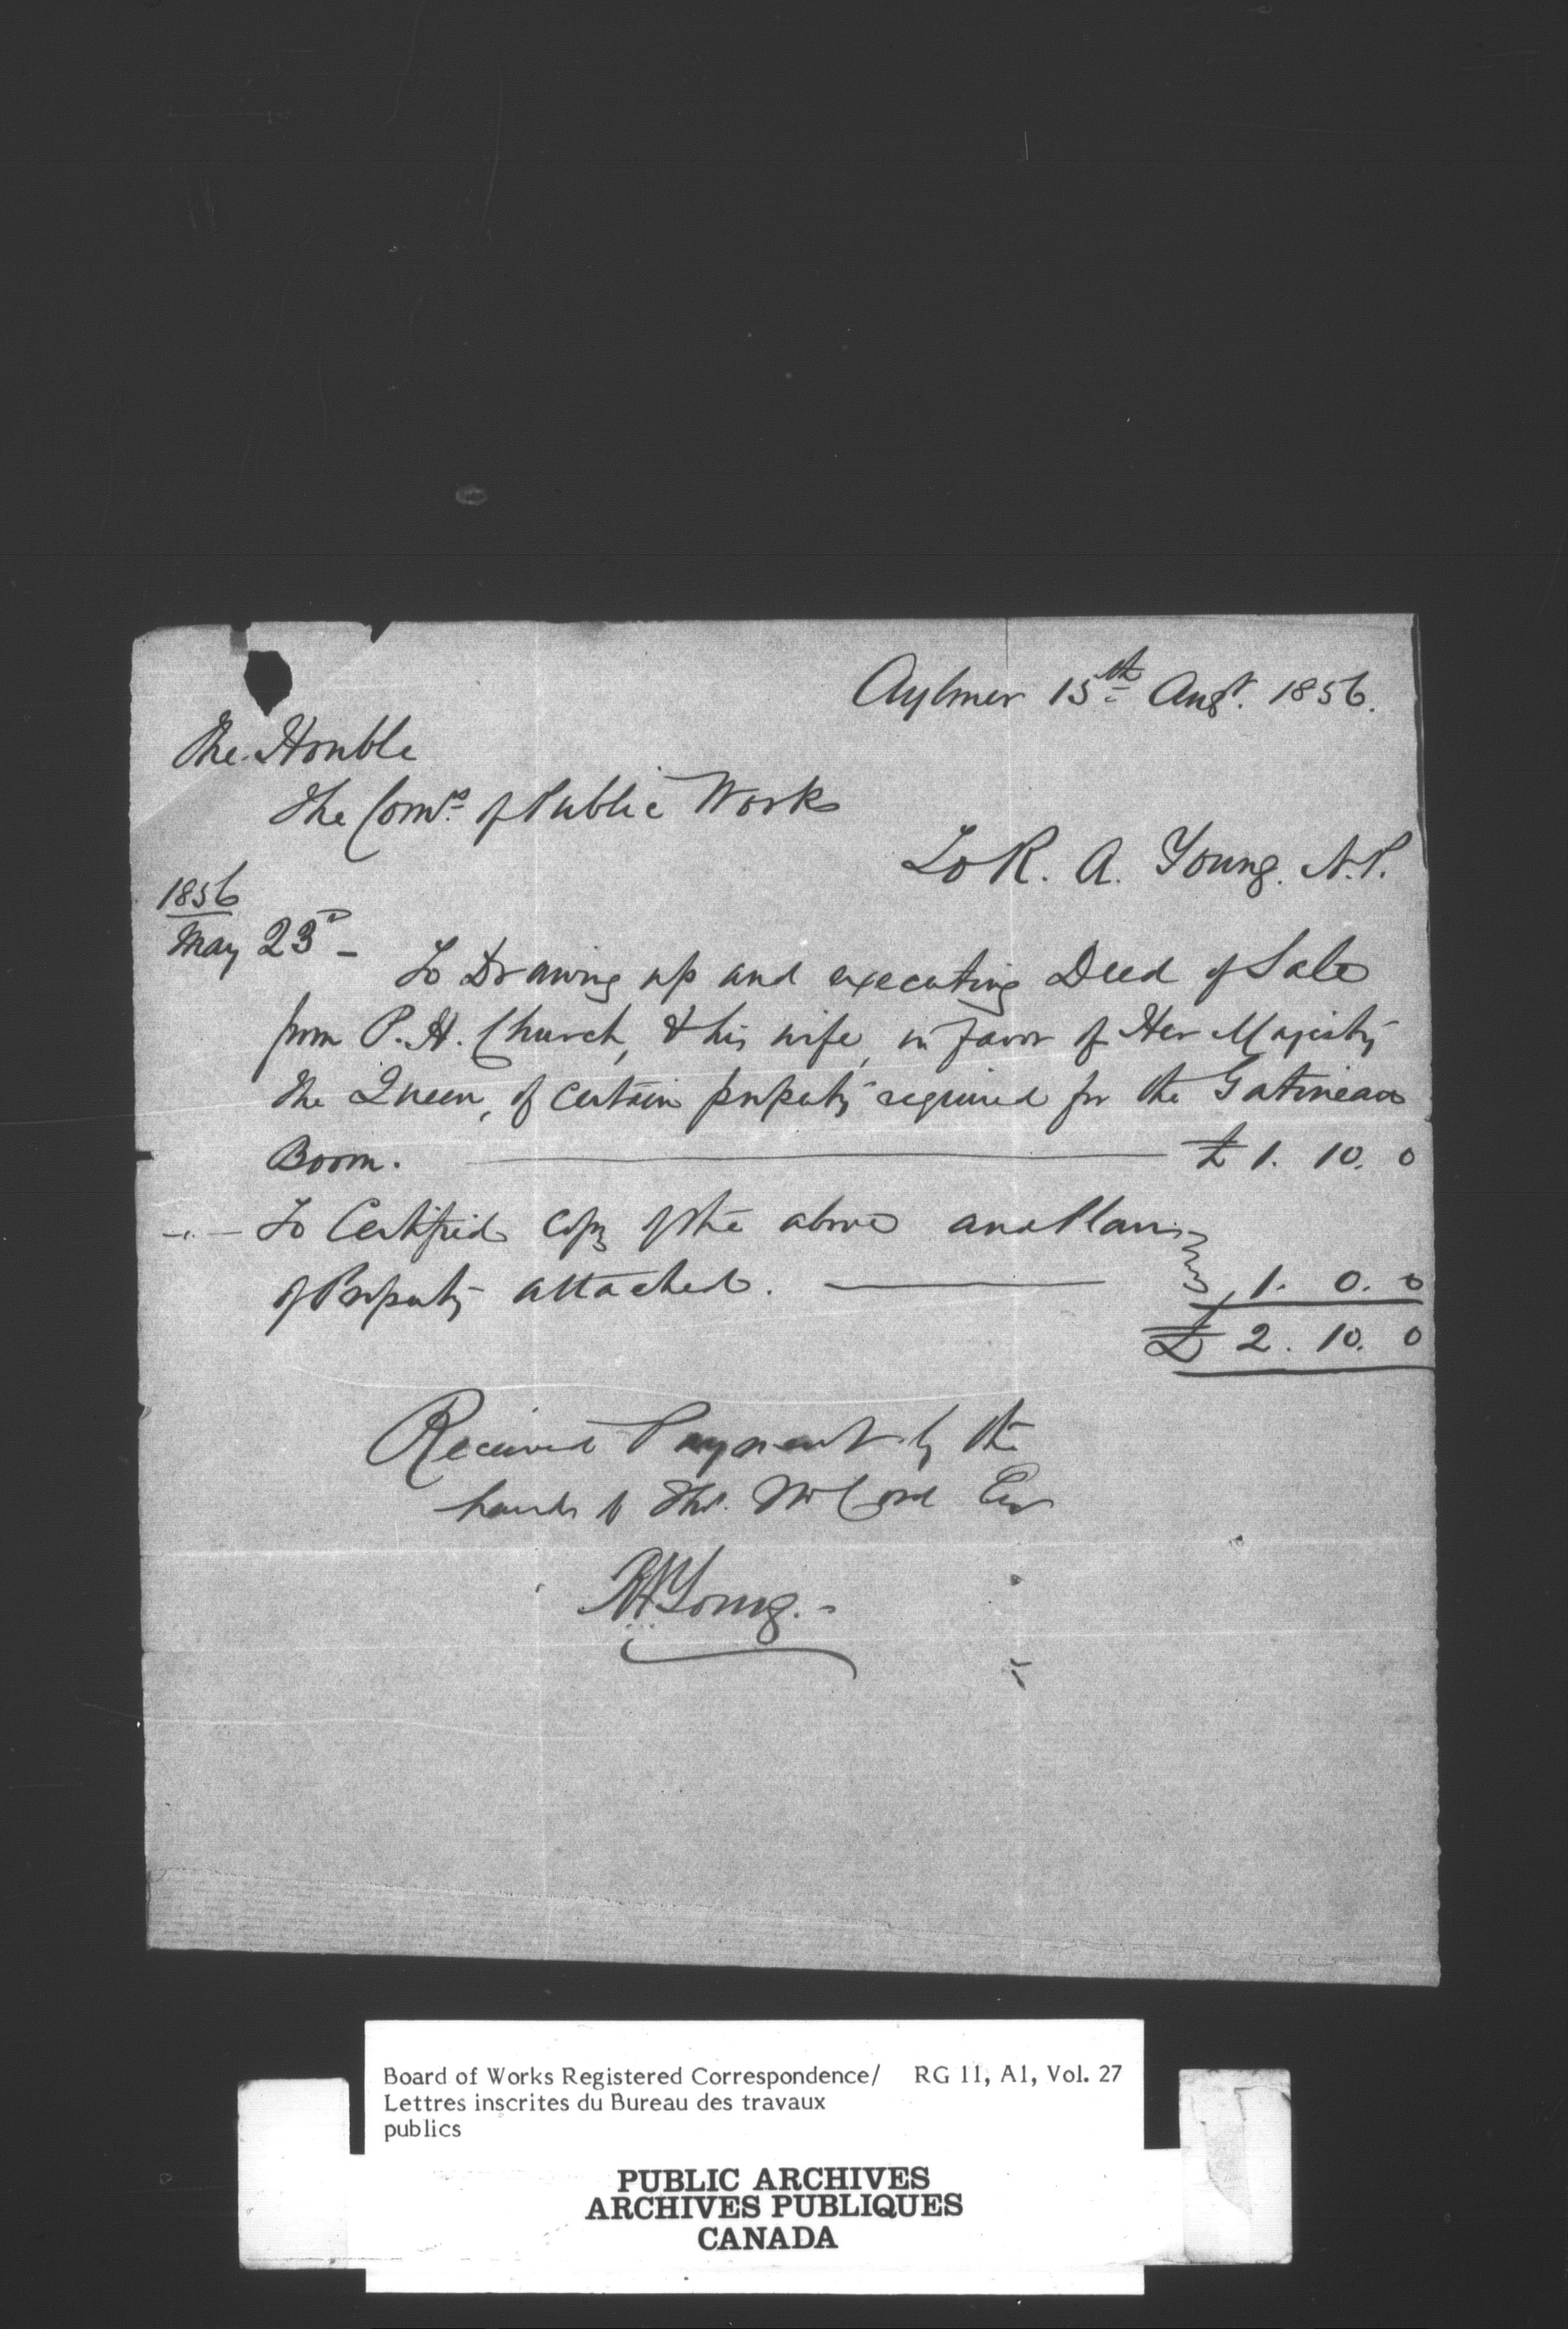 Aylmer 15th Augt. 1856.
The Honble
The Comrs. of Public Works
To R. A. Young. N.P.
1856
May 23d - To Drawing up and executing Deed of Sale
from P. H. Church, & his wife, in favor of Her Majesty
the Queen, of certain property required for the Gatineau
Boom. £ 1. 10. 0
To Certified copy of the above and Plan
of Property attached. 1. 0. 0
£ 2. 10. 0
Received Payment by the
hands of Thos. McCord Esr
RAYoung.-
Board of Works Registered Correspondence/ RG 11, A1, Vol. 27
Lettres inscrites du Bureau des travaux
publics
PUBLIC ARCHIVES
ARCHIVES PUBLIQUES
CANADA